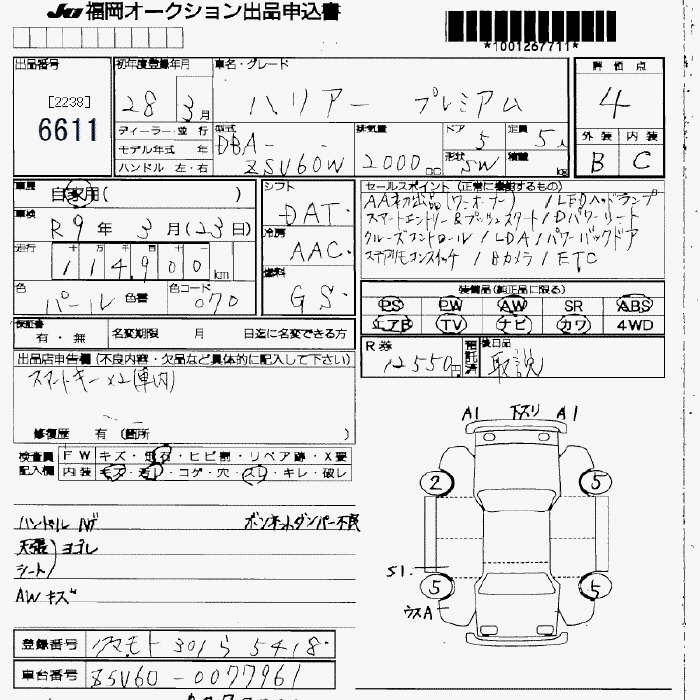 JU 福岡オークション出品申込書
*1001267711*
出品番号
[2238]
6611
初年度登録年月
28 3月
車名・グレード
ハリアー プレミアム
評価点
4
外装 内装
B C
ディーラー・並行
モデル年式 年
ハンドル 左・右
型式
DBA-
ZSU60W
排気量
2000cc
ドア
5
形状
SW
定員
5人
積量
kg
車歴
自家用( )
車検
R9年3月(23日)
走行
十 万 千 百 十
114,900km
色
パール 色替
色コード
070
シフト
DAT
冷房
AAC
燃料
GS
セールスポイント (正常に機能するもの)
AA初出品(ワンオーナー) / LEDヘッドランプ
スマートエントリー&プッシュスタート / Dパワーシート
クルーズコントロール / LDA / パワーバックドア
ステアリモコンスイッチ / Bカメラ / ETC
装備品(純正品に限る)
PS PW AW SR ABS
エアB TV ナビ カワ 4WD
保証書
有・無
名変期限 月 日迄に名変できる方
R券
12550円
預託済
後日品
取説
出品店申告欄(不良内容・欠品など具体的に記入して下さい)
スマートキー×2(車内)
修復歴 有 (箇所 )
検査員
記入欄
FW キズ・飛石・ヒビ割・リペア跡・X要
内装 キズ・汚レ・コゲ・穴・スレ・キレ・破レ
ハンドル ハゲ ボンネットダンパー不良
天張
シート ヨゴレ
AWキズ
A1 下スリ A1
2 5
S1
5 5
ウスA
登録番号
クマモト 301 ら 5418
車台番号
ZSU60-0077961